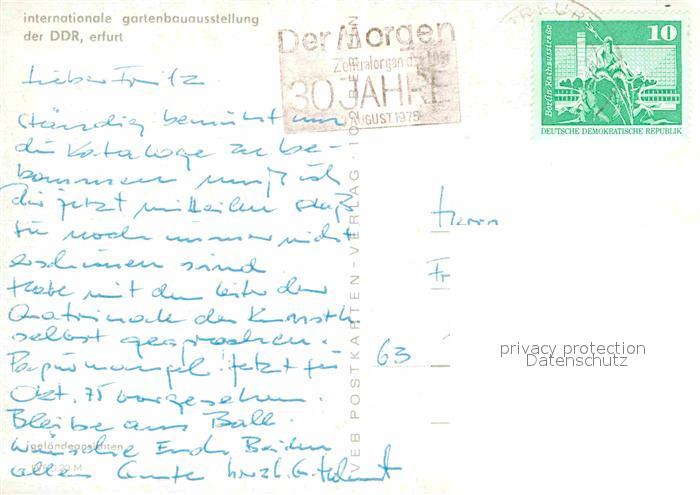 internationale gartenbauausstellung
der DDR, erfurt
Der Morgen
Zentralorgan der LDPD
30 JAHRE
AUGUST 1975
ERFURT
10
Berlin, Rathausstraße
DEUTSCHE DEMOKRATISCHE REPUBLIK
Lieber Fritz
ständig bemüht um
die Kataloge zu be-
kommen muß ich
dir jetzt mitteilen daß
sie noch immer nicht
erschienen sind.
Habe mit dem Leiter der
Quatrinale der Kunsth.
selbst gesprochen.
Papiermangel! Jetzt für
Okt. 75 vorgesehen.
Bleibe am Ball.
Wünsche Euch Beiden
alles Gute herzl. G. Helmut
Herrn
Fr
63
geländeansichten
M
VEB POSTKARTEN-VERLAG · BERLIN
privacy protection
Datenschutz